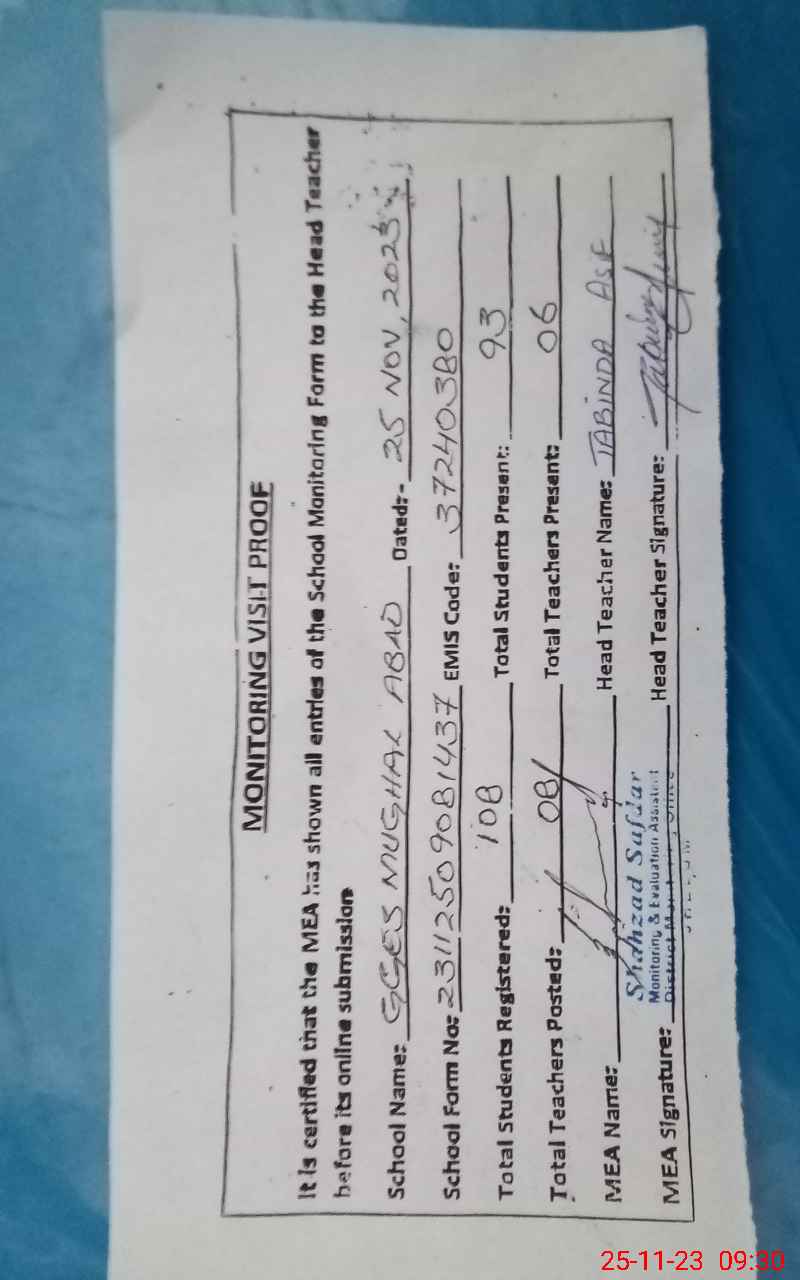 MONITORING VISIT PROOF
It is certified that the MEA has shown all entries of the School Monitoring Form to the Head Teacher
before its online submission
School Name: GGES MUGHAL ABAD Dated:- 25 NOV, 2023
School Form No: 23112509081437 EMIS Code: 37240380
Total Students Registered: 108 Total Students Present: 93
Total Teachers Posted: 08 Total Teachers Present: 06
MEA Name: Head Teacher Name: TABINDA ASIF
Shahzad Safdar
Monitoring & Evaluation Assistant
MEA Signature: District Head Teacher Signature:
25-11-23 09:30